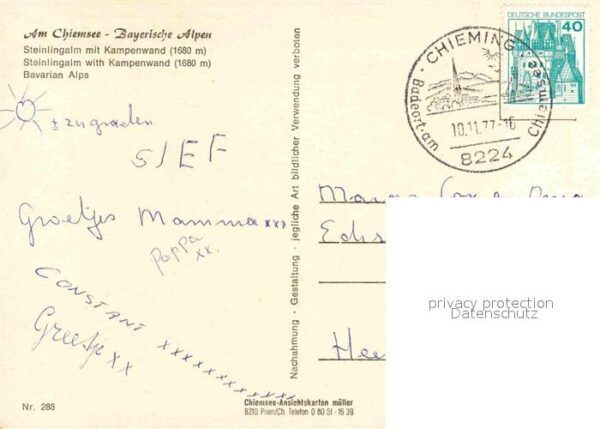 Am Chiemsee - Bayerische Alpen
Steinlingalm mit Kampenwand (1680 m)
Steinlingalm with Kampenwand (1680 m)
Bavarian Alps
SIEF
Groetjes Mamma xxx
Pappa
xx.
CONSTANT xxxxxxxxxxxx
Greetje xx
Nr. 286
Nachahmung - Gestaltung - jegliche Art bildlicher Verwendung verboten
Chiemsee-Ansichtskarten müller
8210 Prien/Ch. Telefon 0 80 51 - 16 39
DEUTSCHE BUNDESPOST
40
CHIEMING
Badeort · am Chiemsee
10.11.77-16
8224
privacy protection
Datenschutz